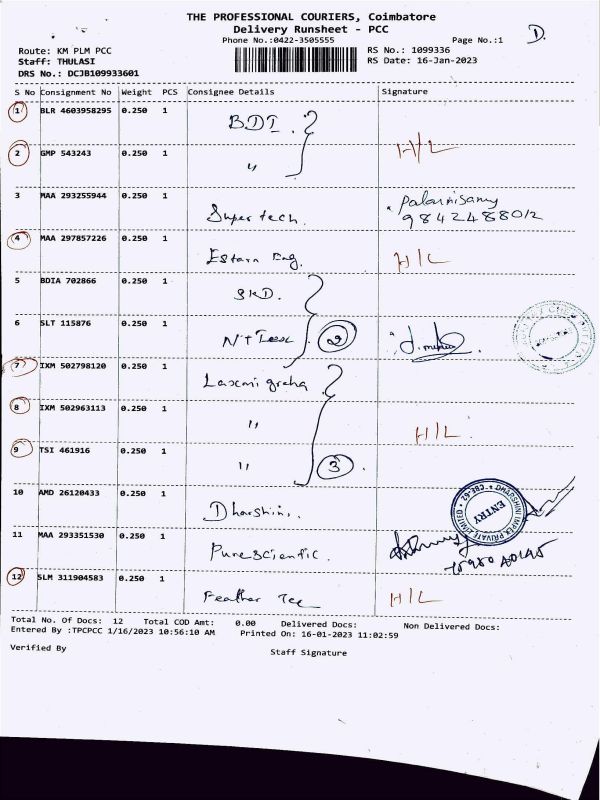 THE PROFESSIONAL COURIERS, Coimbatore
Delivery Runsheet - PCC
D.
Phone No.:0422-3505555
Page No.:1
Route: KM PLM PCC
RS No.: 1099336
Staff: THULASI
RS Date: 16-Jan-2023
DRS No.: DCJB109933601
S No Consignment No Weight PCS Consignee Details Signature
1 BLR 4603958295 0.250 1 BDI.
2 GMP 543243 0.250 1 " H/L
3 MAA 293255944 0.250 1 Supertech. Palanisamy
9842488012
4 MAA 297857226 0.250 1 Estarn Eng. H/L
5 BDIA 702866 0.250 1 SKD.
6 SLT 115876 0.250 1 2
7 IXM 502798120 0.250 1 Laxmi graha
8 IXM 502963113 0.250 1 " H/L.
9 TSI 461916 0.250 1 " 3.
10 AMD 26120433 0.250 1 Dharshini. DHARSHINI IMPEX PRIVATE LIMITED CBE-62 ENTRY
11 MAA 293351530 0.250 1 Purescientific.
12 SLM 311904583 0.250 1 Feather Tee H/L
Total No. Of Docs: 12 Total COD Amt: 0.00 Delivered Docs: Non Delivered Docs:
Entered By :TPCPCC 1/16/2023 10:56:10 AM Printed On: 16-01-2023 11:02:59
Verified By
Staff Signature